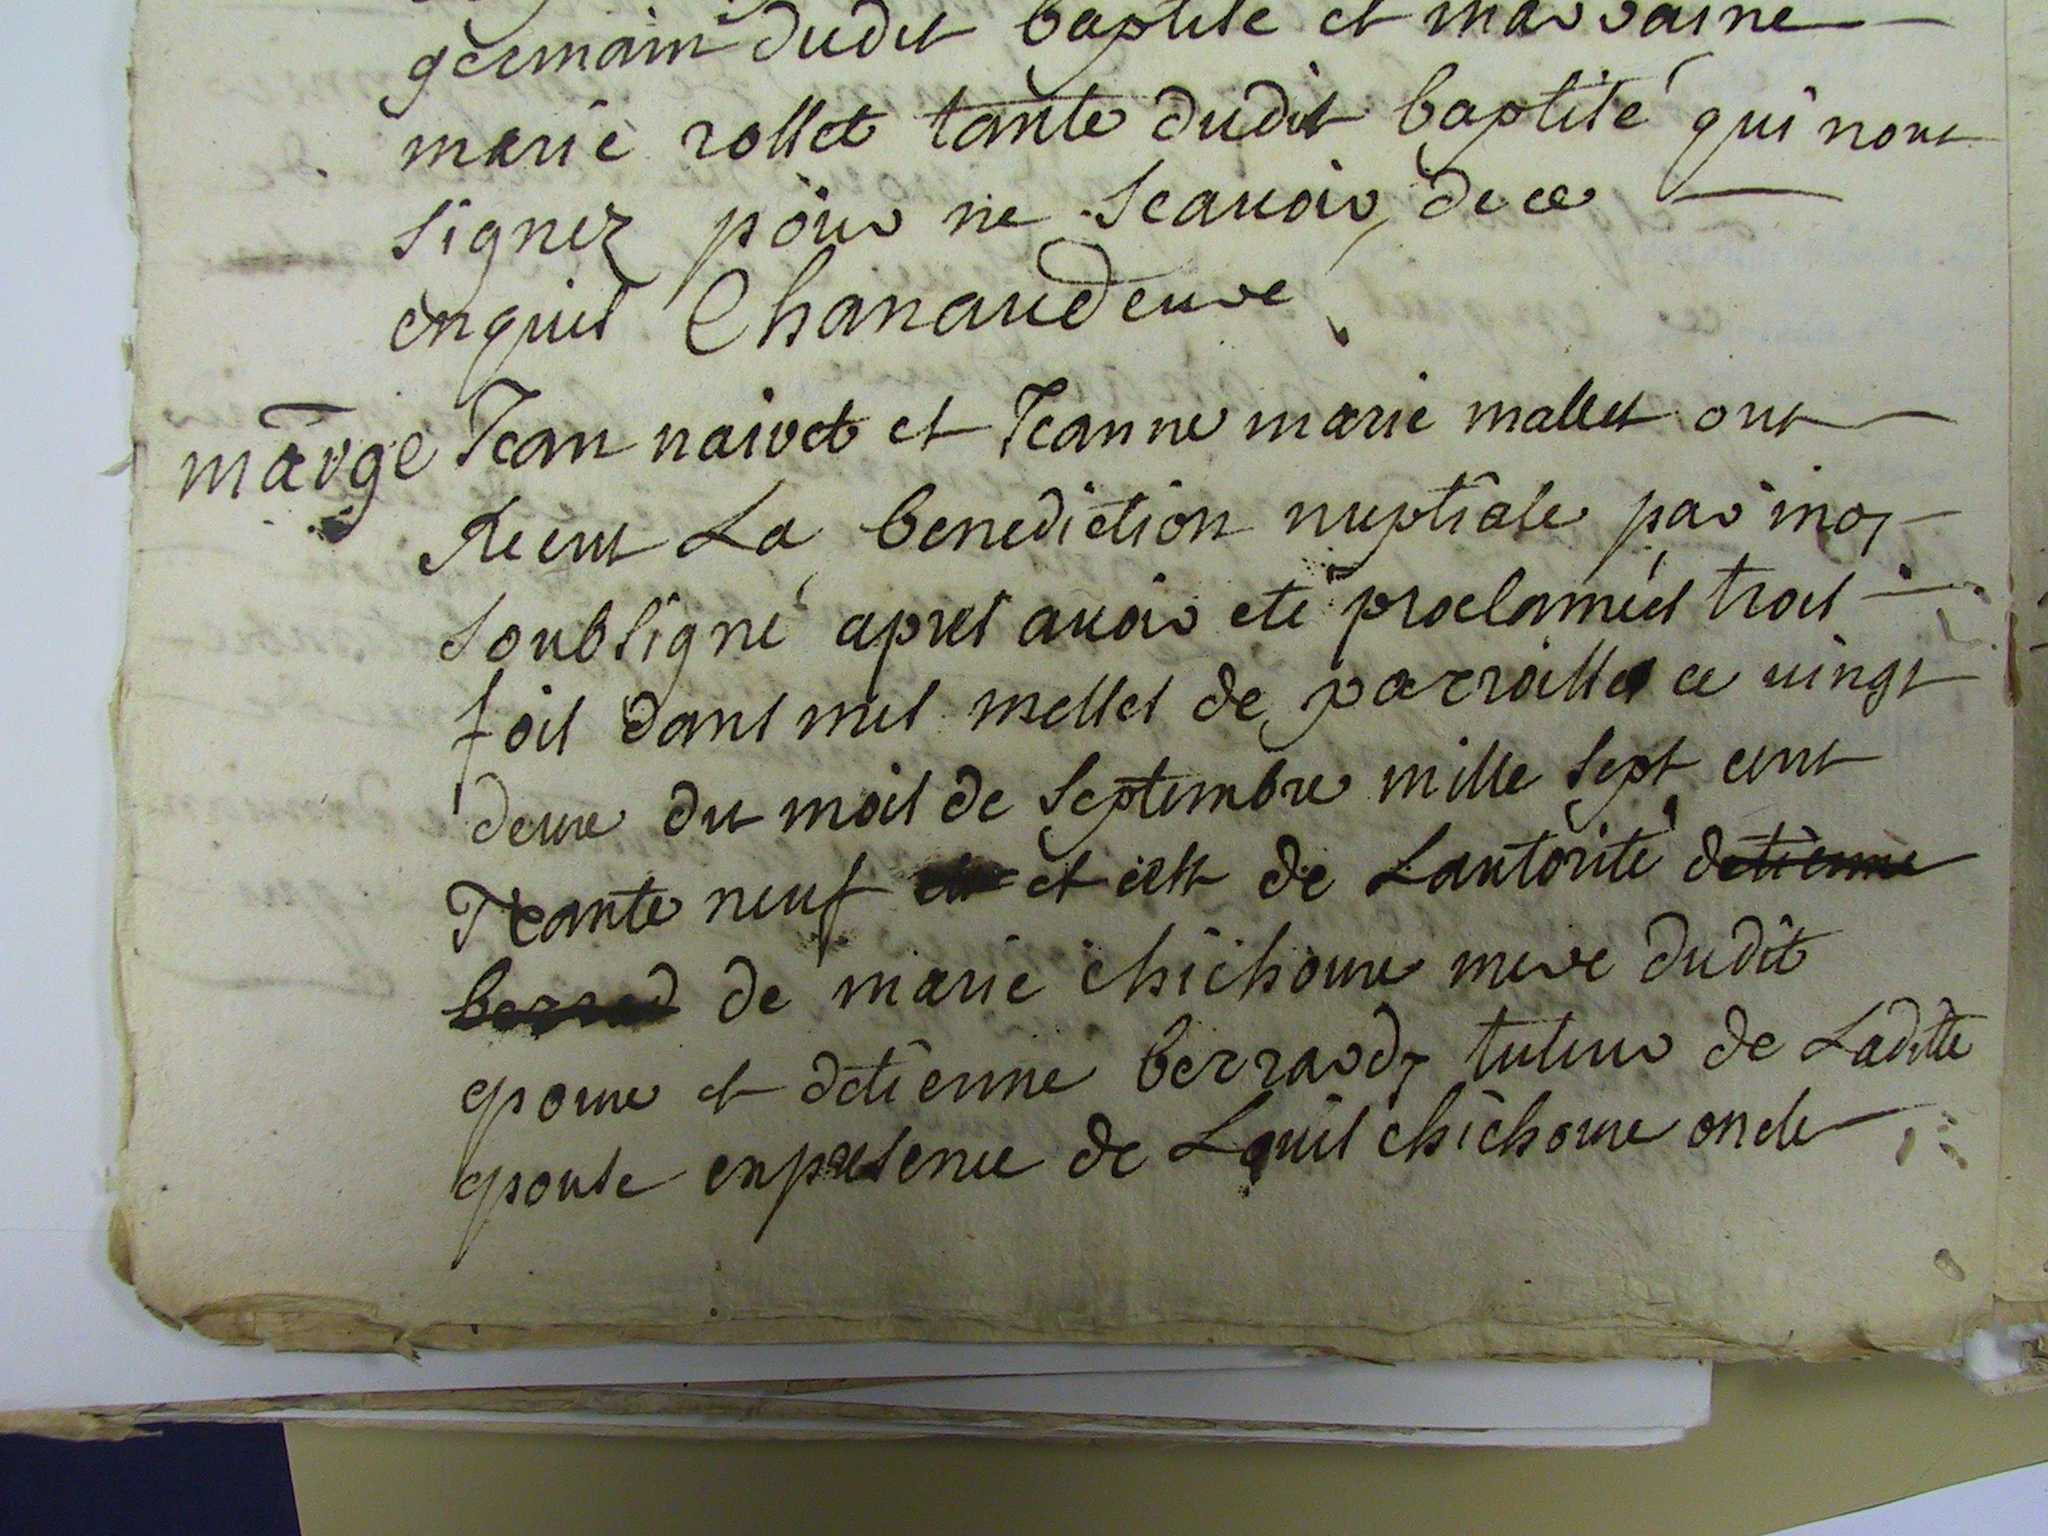 germain dudit baptisé et marraine
marie rollet tante dudit baptisé qui nont
signez pour ne scauoir de ce
enquis Chanaudeuve
marge Jean naivet et Jeanne marie mallet ont
Receut La benediction nuptiale par moy
soubsigné apres auoir eté proclamés trois
fois dans mes messes de parroisse ce uingt
deux du mois de Septembre mille sept cent
Trante neuf et est de Lautorité detienne
berrard de marie chichoux mere dudit
epoux et detienne berrard tuteur de Laditte
epouse en presence de Louis chichoux oncle